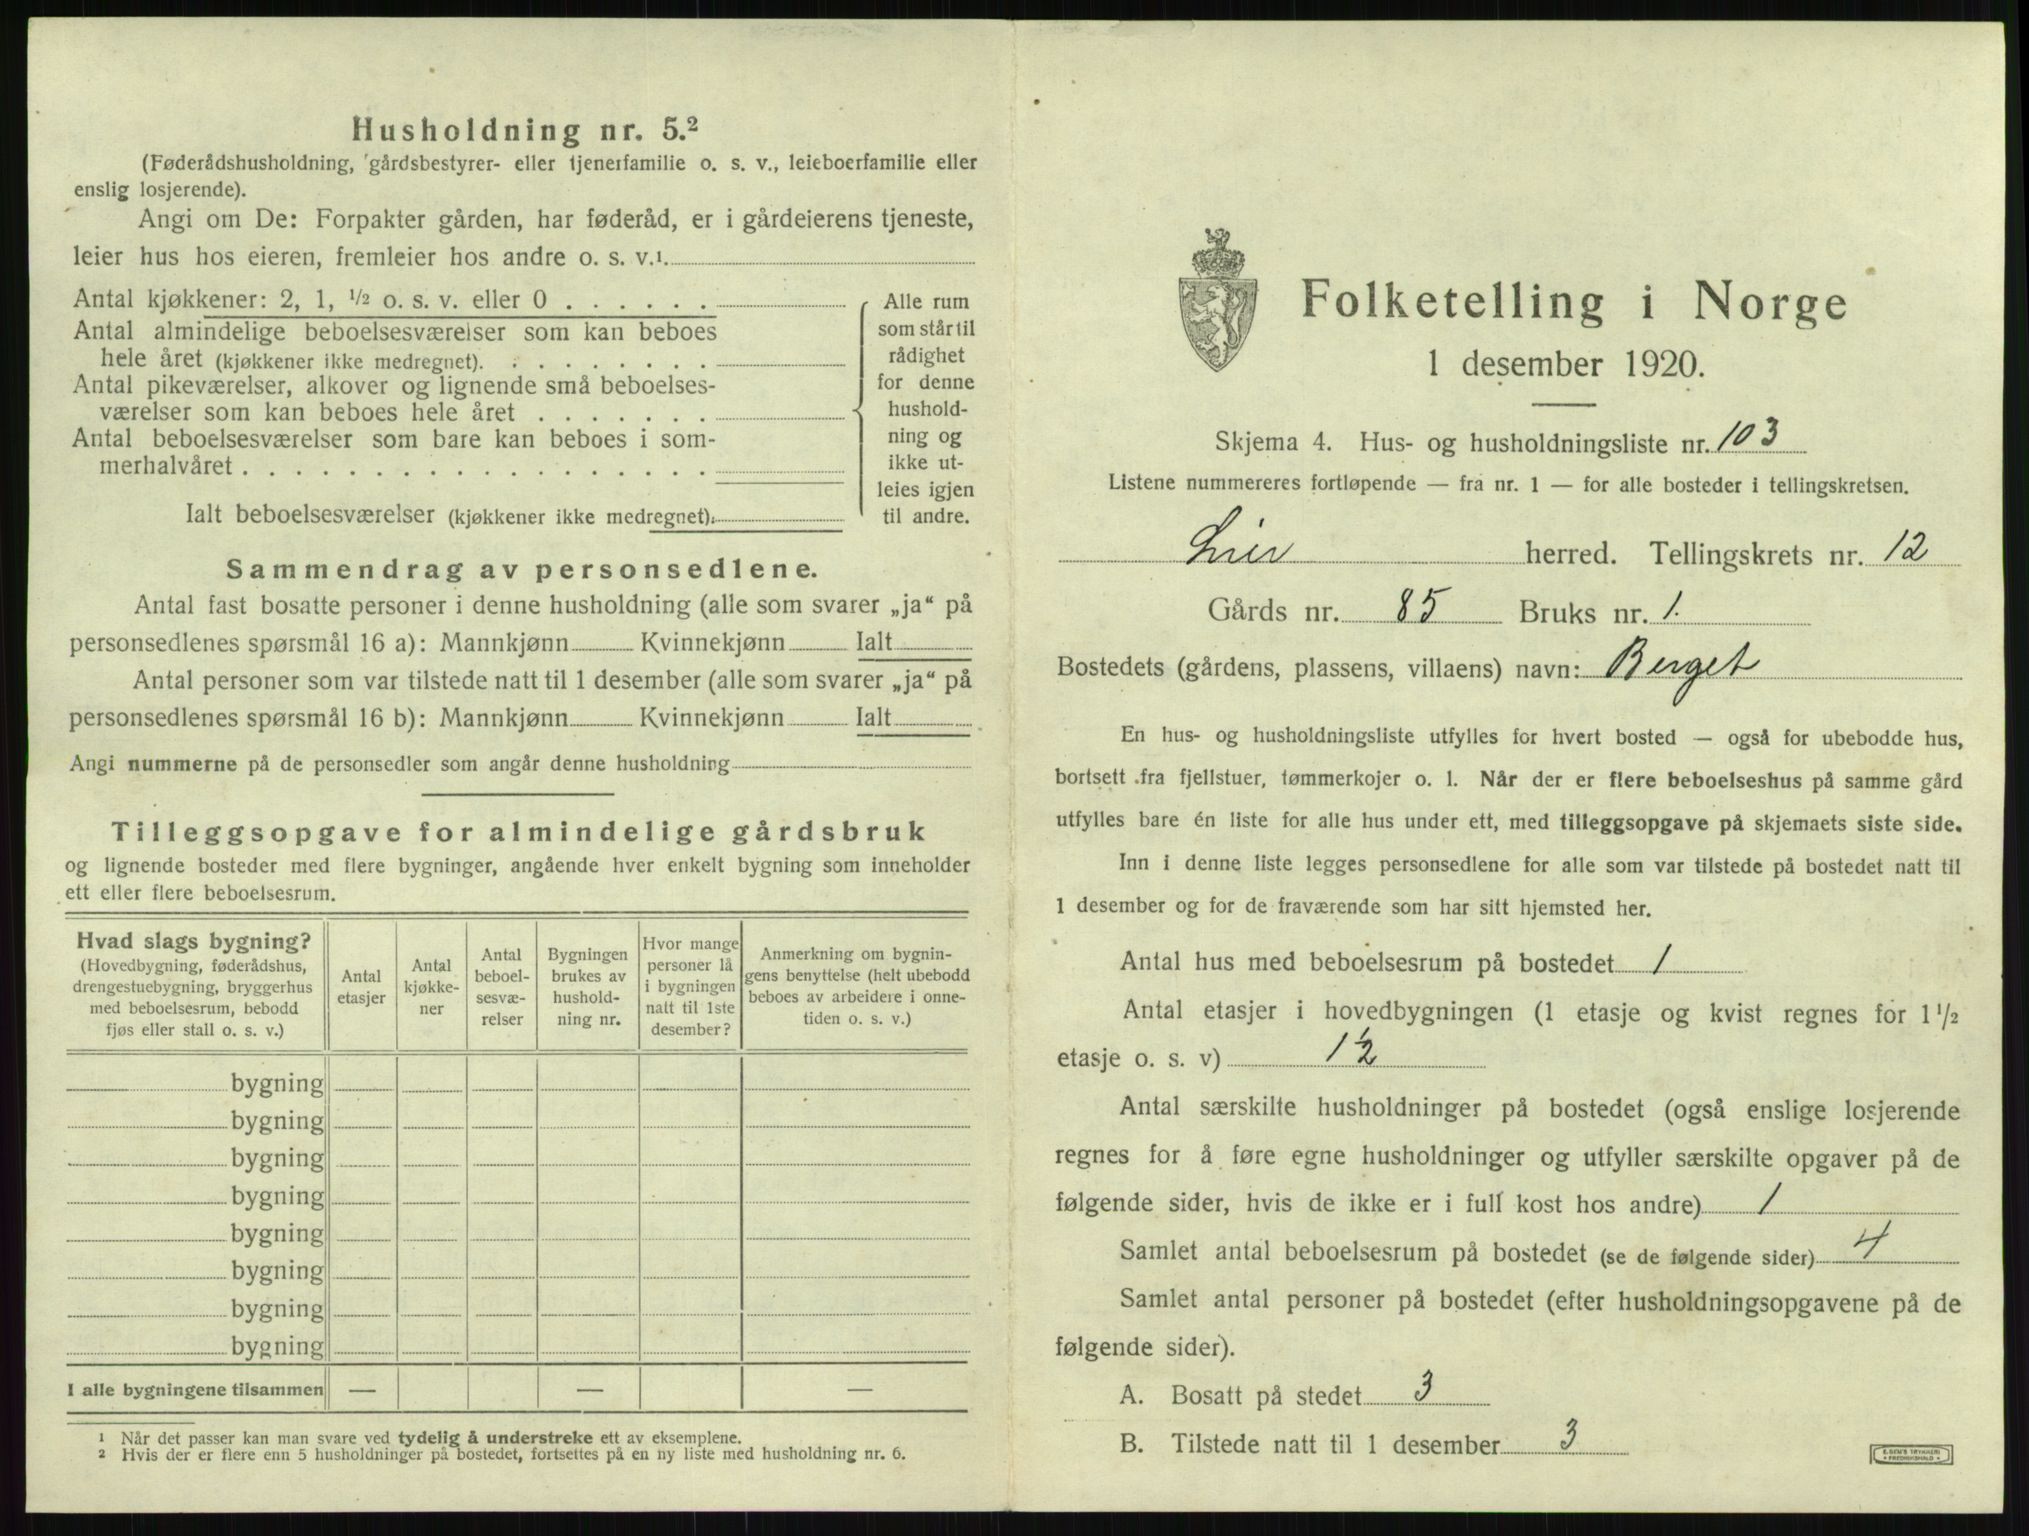 Husholdning nr. 5.²
(Føderådshusholdning, gårdsbestyrer- eller tjenerfamilie o. s. v., leieboerfamilie eller
enslig losjerende).
Angi om De: Forpakter gården, har føderåd, er i gårdeierens tjeneste,
leier hus hos eieren, fremleier hos andre o. s. v.¹
Antal kjøkkener: 2, 1, ½ o. s. v. eller 0
Antal almindelige beboelsesværelser som kan beboes
hele året (kjøkkener ikke medregnet).
Antal pikeværelser, alkover og lignende små beboelses-
værelser som kan beboes hele året
Antal beboelsesværelser som bare kan beboes i som-
merhalvåret
Ialt beboelsesværelser (kjøkkener ikke medregnet):
Alle rum
som står til
rådighet
for denne
hushold-
ning og
ikke ut-
leies igjen
til andre.
Sammendrag av personsedlene.
Antal fast bosatte personer i denne husholdning (alle som svarer „ja“ på
personsedlenes spørsmål 16 a): Mannkjønn Kvinnekjønn Ialt
Antal personer som var tilstede natt til 1 desember (alle som svarer „ja“ på
personsedlenes spørsmål 16 b): Mannkjønn Kvinnekjønn Ialt
Angi nummerne på de personsedler som angår denne husholdning
Tilleggsopgave for almindelige gårdsbruk
og lignende bosteder med flere bygninger, angående hver enkelt bygning som inneholder
ett eller flere beboelsesrum.
Hvad slags bygning?
(Hovedbygning, føderådshus,
drengestuebygning, bryggerhus
med beboelsesrum, bebodd
fjøs eller stall o. s. v.)
Antal
etasjer
Antal
kjøkke-
ner
Antal
beboel-
sesvæ-
relser
Bygningen
brukes av
hushold-
ning nr.
Hvor mange
personer lå
i bygningen
natt til 1ste
desember?
Anmerkning om bygnin-
gens benyttelse (helt ubebodd
beboes av arbeidere i onne-
tiden o. s. v.)
bygning
bygning
bygning
bygning
bygning
bygning
bygning
bygning
I alle bygningene tilsammen — — —
¹ Når det passer kan man svare ved tydelig å understreke ett av eksemplene.
² Hvis der er flere enn 5 husholdninger på bostedet, fortsettes på en ny liste med husholdning nr. 6.
Folketelling i Norge
1 desember 1920.
Skjema 4. Hus- og husholdningsliste nr. 103
Listene nummereres fortløpende — fra nr. 1 — for alle bosteder i tellingskretsen.
Lier herred. Tellingskrets nr. 12
Gårds nr. 85 Bruks nr. 1.
Bostedets (gårdens, plassens, villaens) navn: Berget
En hus- og husholdningsliste utfylles for hvert bosted — også for ubebodde hus,
bortsett fra fjellstuer, tømmerkojer o. l. Når der er flere beboelseshus på samme gård
utfylles bare én liste for alle hus under ett, med tilleggsopgave på skjemaets siste side.
Inn i denne liste legges personsedlene for alle som var tilstede på bostedet natt til
1 desember og for de fraværende som har sitt hjemsted her.
Antal hus med beboelsesrum på bostedet 1
Antal etasjer i hovedbygningen (1 etasje og kvist regnes for 1½
etasje o. s. v) 1½
Antal særskilte husholdninger på bostedet (også enslige losjerende
regnes for å føre egne husholdninger og utfyller særskilte opgaver på de
følgende sider, hvis de ikke er i full kost hos andre) 1
Samlet antal beboelsesrum på bostedet (se de følgende sider) 4
Samlet antal personer på bostedet (efter husholdningsopgavene på de
følgende sider).
A. Bosatt på stedet 3
B. Tilstede natt til 1 desember 3
E. SEM'S TRYKKERI
• FREDRIKSHALD •